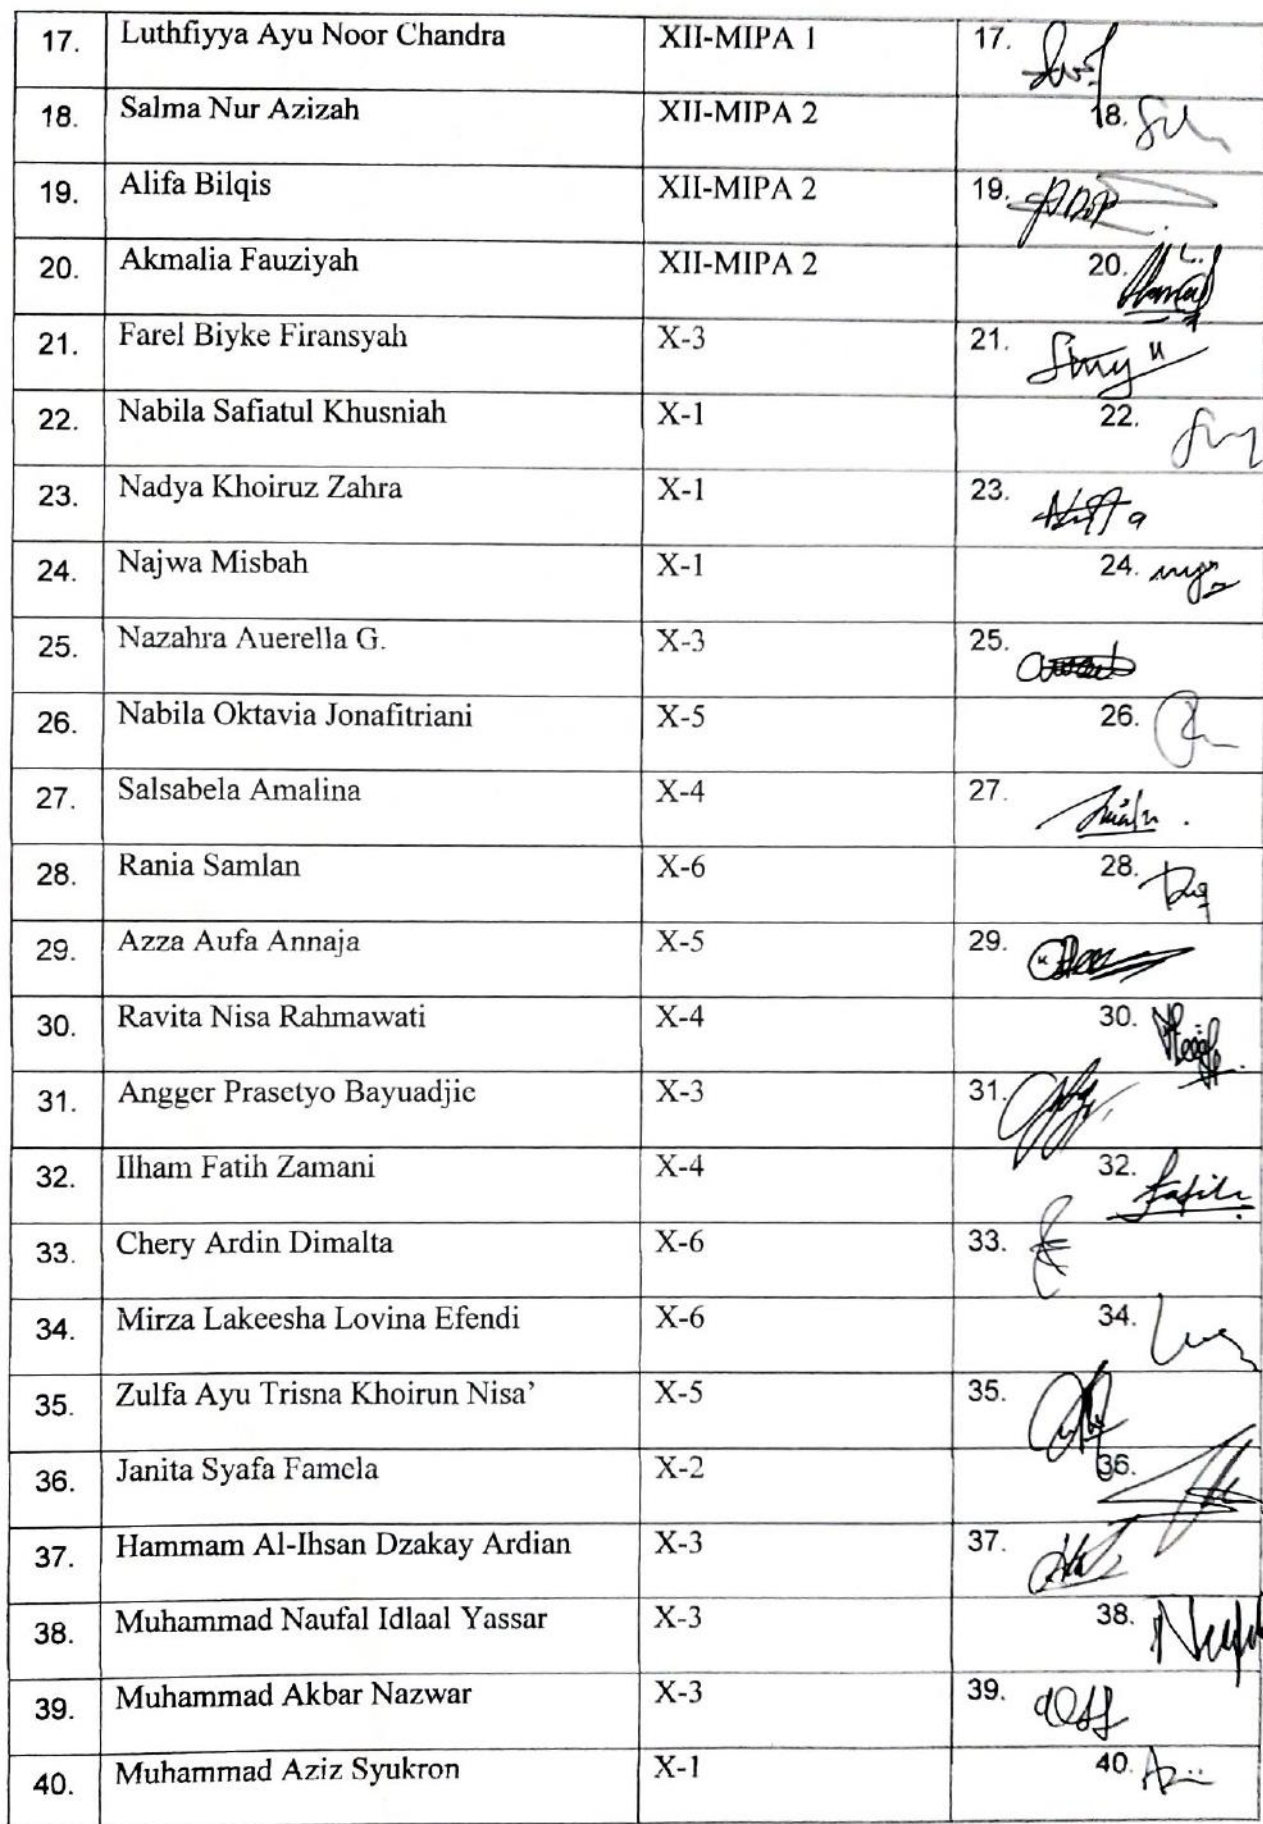 17. Luthfiyya Ayu Noor Chandra XII-MIPA 1 17.
18. Salma Nur Azizah XII-MIPA 2 18.
19. Alifa Bilqis XII-MIPA 2 19.
20. Akmalia Fauziyah XII-MIPA 2 20.
21. Farel Biyke Firansyah X-3 21.
22. Nabila Safiatul Khusniah X-1 22.
23. Nadya Khoiruz Zahra X-1 23.
24. Najwa Misbah X-1 24.
25. Nazahra Auerella G. X-3 25.
26. Nabila Oktavia Jonafitriani X-5 26.
27. Salsabela Amalina X-4 27.
28. Rania Samlan X-6 28.
29. Azza Aufa Annaja X-5 29.
30. Ravita Nisa Rahmawati X-4 30.
31. Angger Prasetyo Bayuadjie X-3 31.
32. Ilham Fatih Zamani X-4 32.
33. Chery Ardin Dimalta X-6 33.
34. Mirza Lakeesha Lovina Efendi X-6 34.
35. Zulfa Ayu Trisna Khoirun Nisa’ X-5 35.
36. Janita Syafa Famela X-2 36.
37. Hammam Al-Ihsan Dzakay Ardian X-3 37.
38. Muhammad Naufal Idlaal Yassar X-3 38.
39. Muhammad Akbar Nazwar X-3 39.
40. Muhammad Aziz Syukron X-1 40.